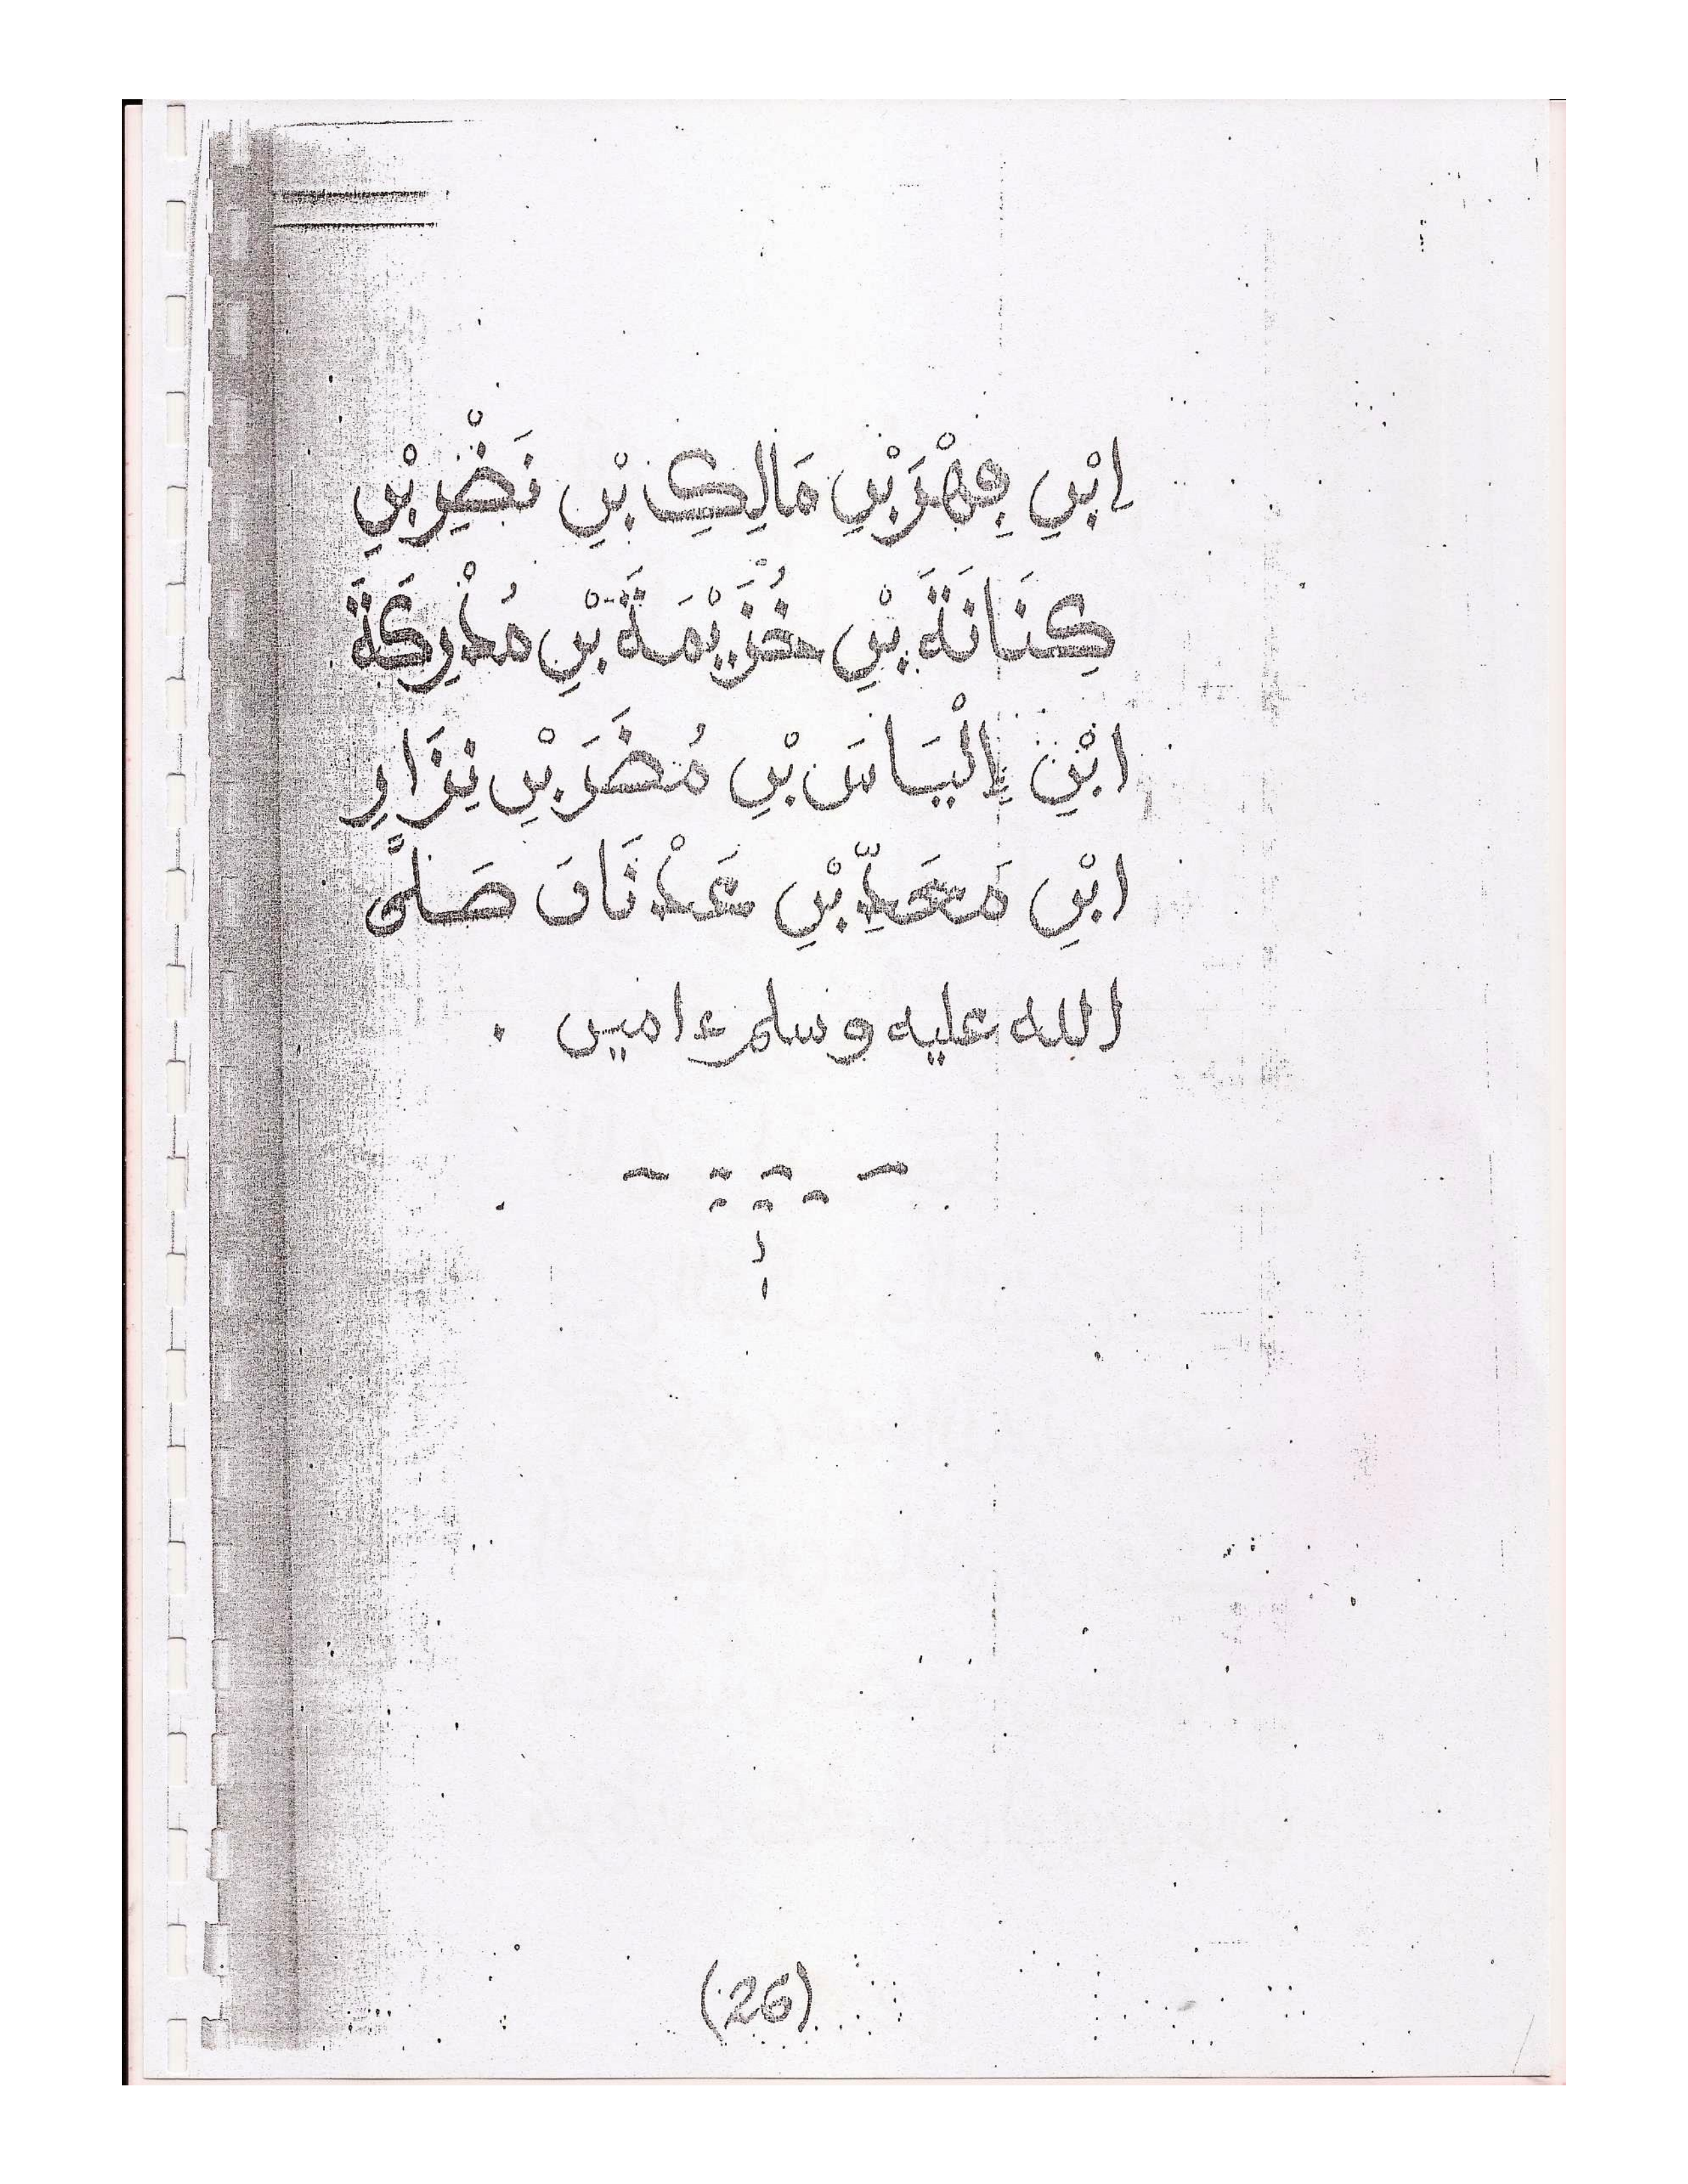 اِبْنِ فِهْرَ بْنِ مَالِكِ بْنِ نَضْرِ بْنِ
كِنَانَةَ بْنِ خُزَيْمَةَ بْنِ مُدْرِكَةَ
ابْنِ إِلْيَاسَ بْنِ مُضَرَ بْنِ نِزَارِ
ابْنِ مَعَدِّ بْنِ عَدْنَانَ صَلَّى
الله عليه وسلم ءامين .
(26)